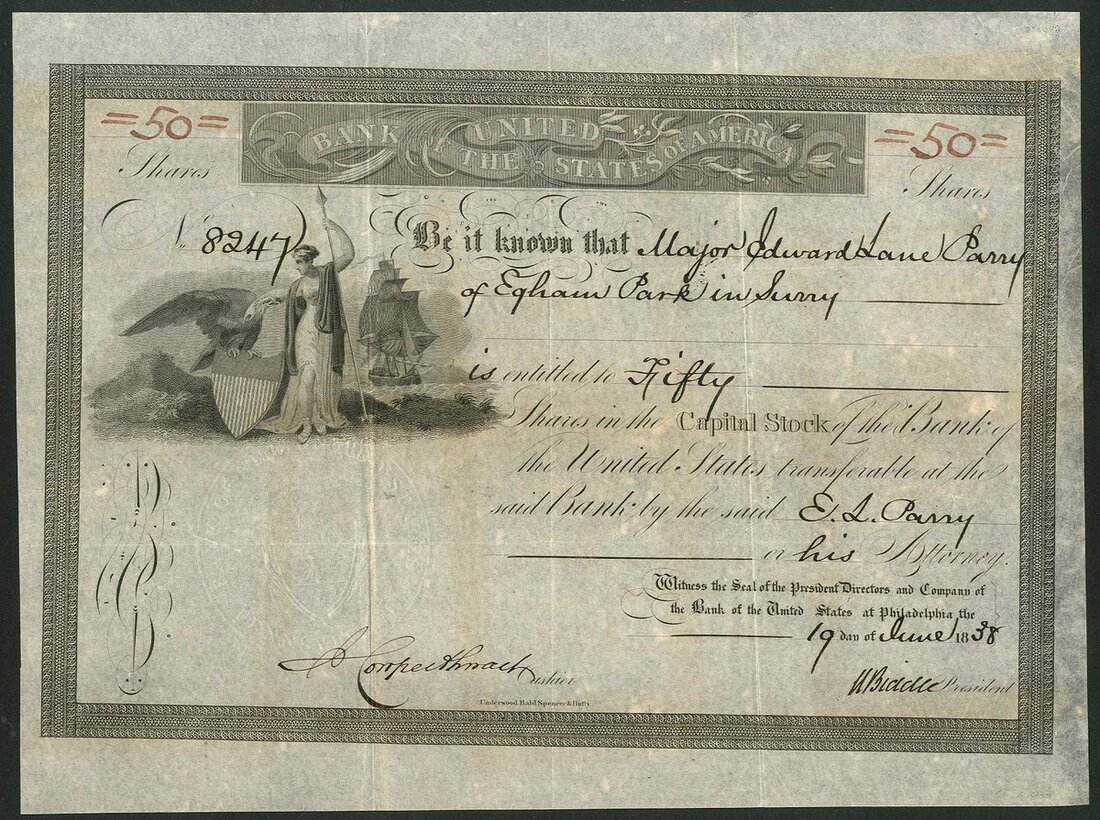 =50=
BANK OF THE UNITED STATES OF AMERICA
=50=
Shares
Shares
No 8247
Be it known that Major Edward Lane Parry
of Egham Park in Surry
is entitled to Fifty
Shares in the Capital Stock of the Bank of
the United States, transferable at the
said Bank by the said E. L. Parry
or his Attorney.
Witness the Seal of the President Directors and Company of
the Bank of the United States at Philadelphia the
19 day of June 1838
J Cowperthwait Cashier
N Biddle President
Underwood Bald Spencer & Hufty